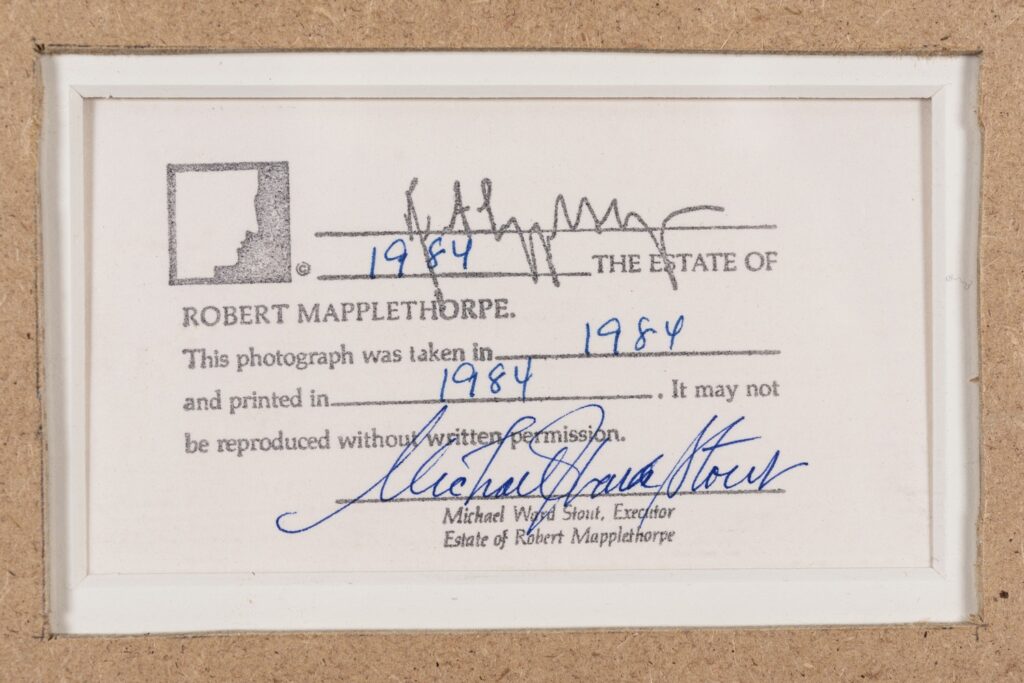 © 1984 THE ESTATE OF
ROBERT MAPPLETHORPE.
This photograph was taken in 1984
and printed in 1984. It may not
be reproduced without written permission.
Michael Ward Stout
Michael Ward Stout, Executor
Estate of Robert Mapplethorpe